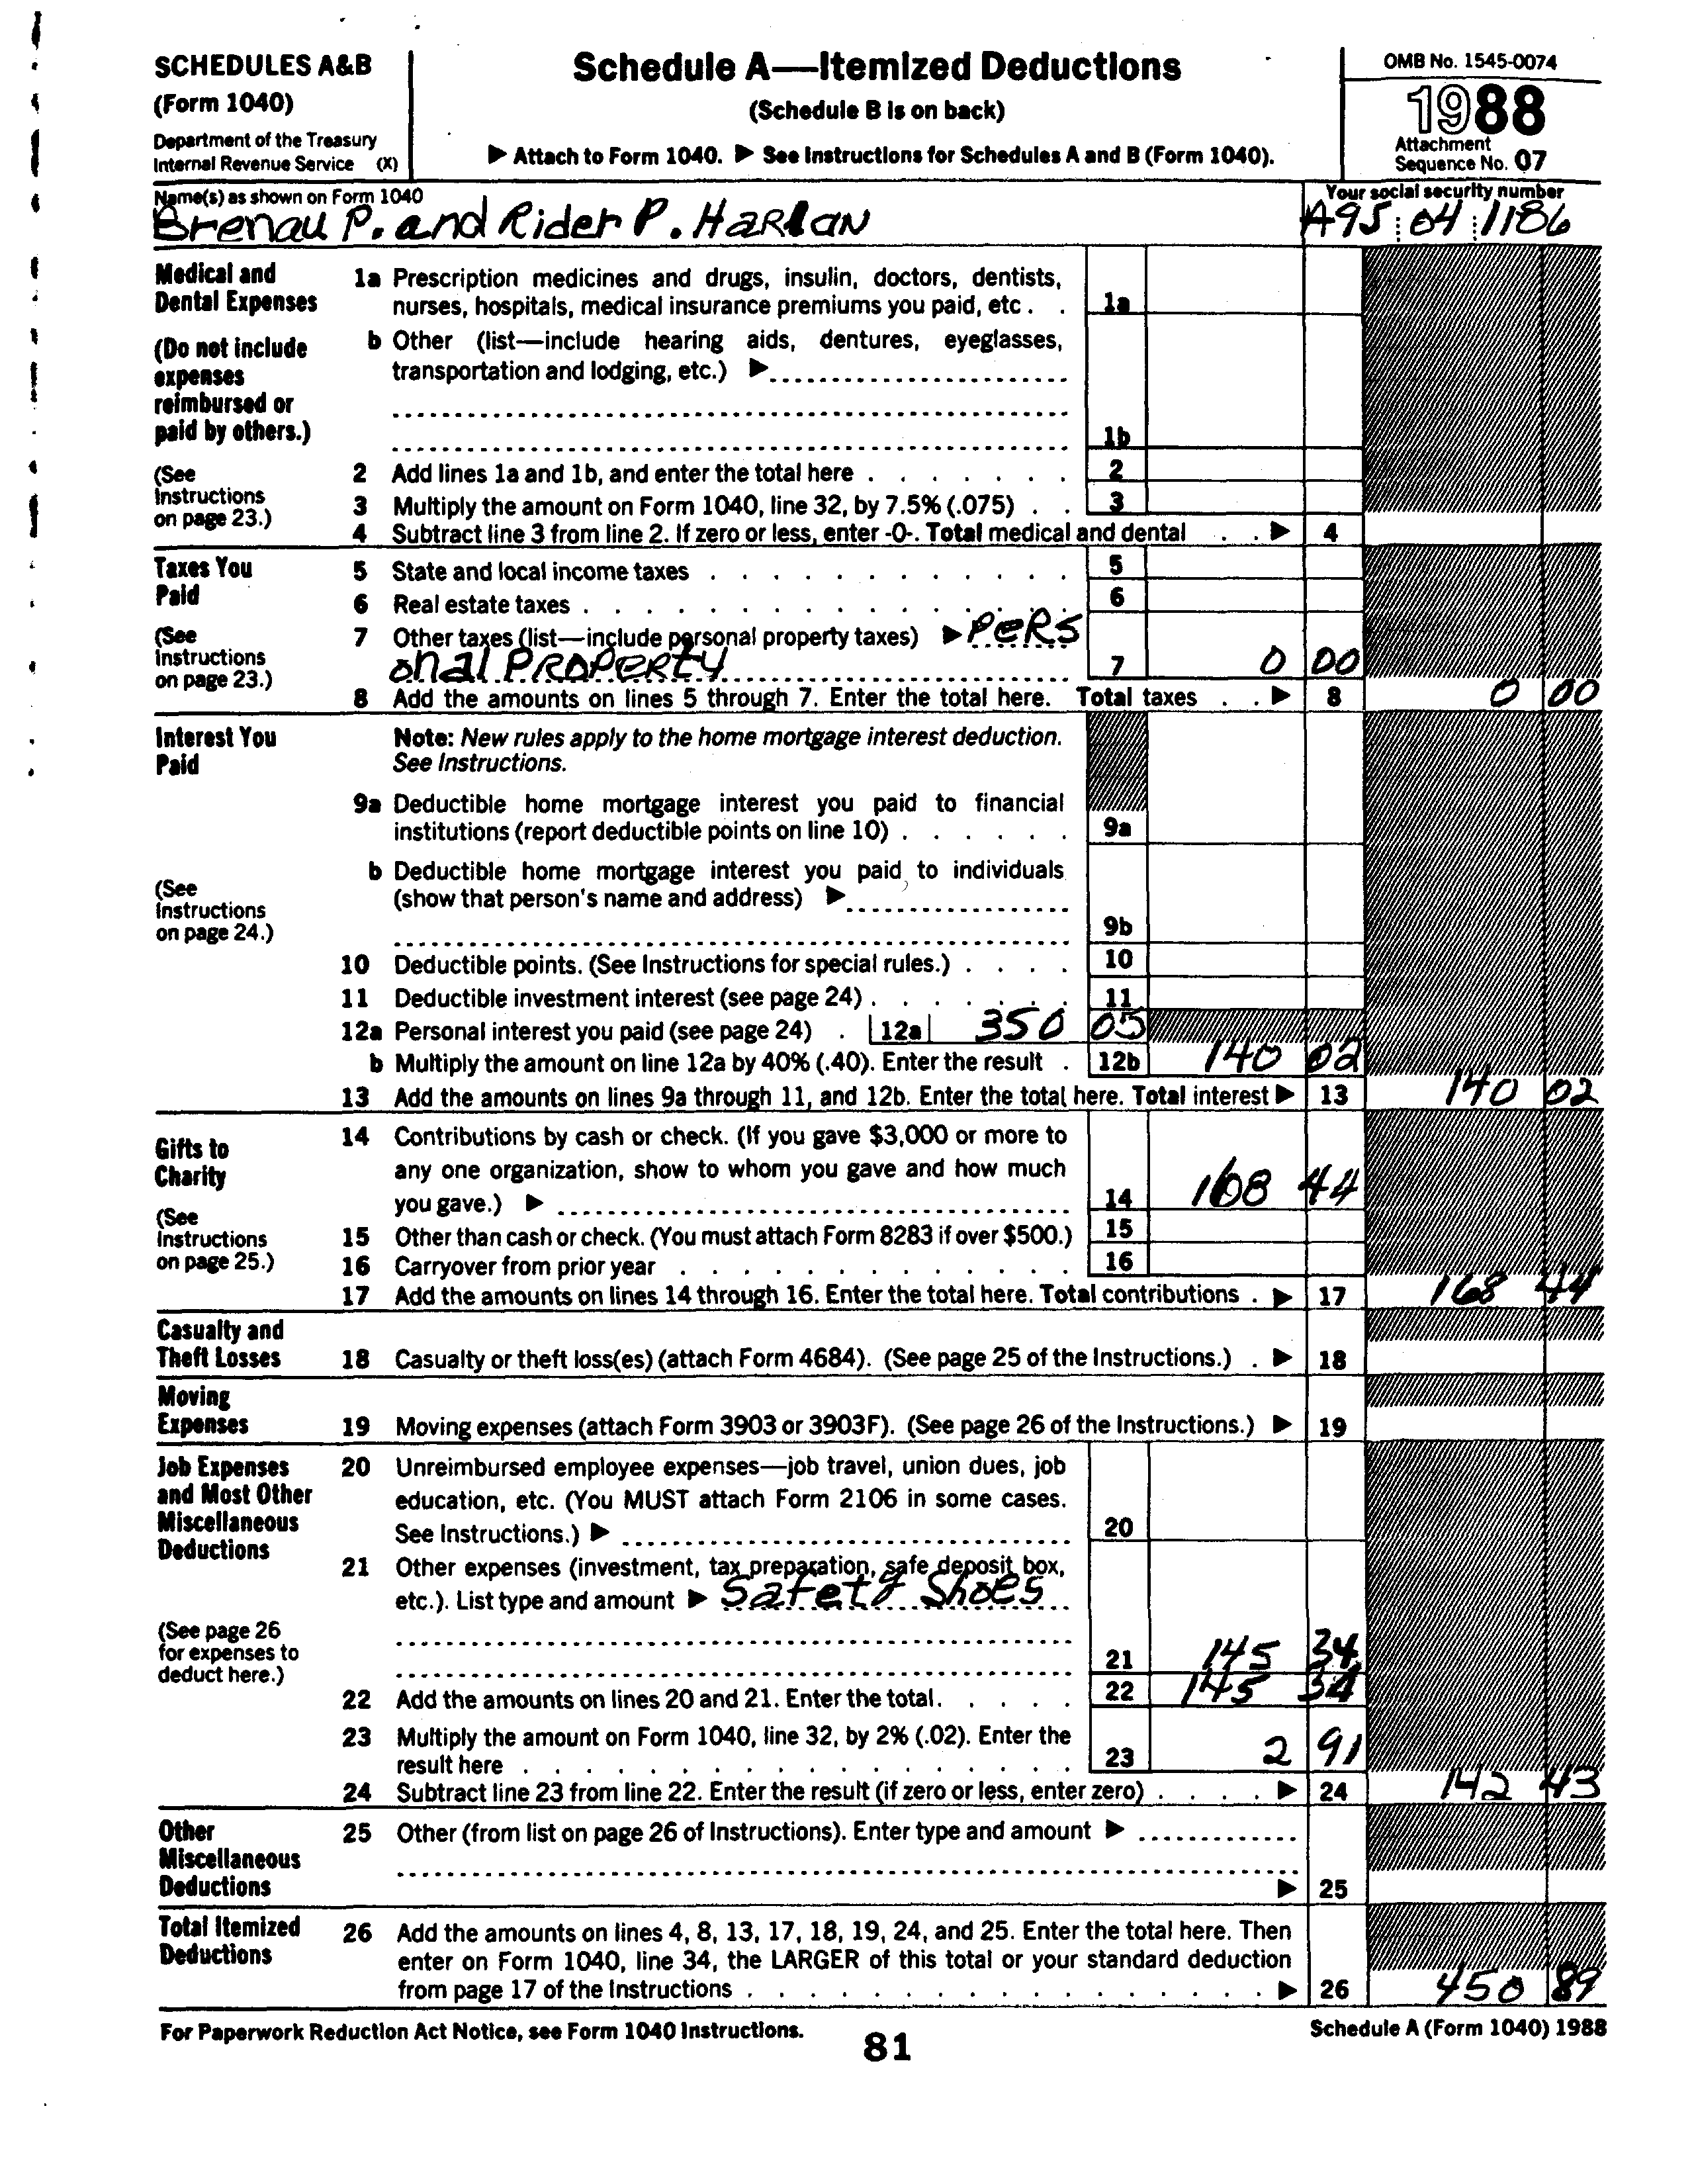 SCHEDULES A&B
(Form 1040)
Department of the Treasury
Internal Revenue Service (X)
Schedule A—Itemized Deductions
(Schedule B is on back)
▶ Attach to Form 1040. ▶ See Instructions for Schedules A and B (Form 1040).
OMB No. 1545-0074
1988
Attachment
Sequence No. 07
Name(s) as shown on Form 1040
Brenau P. and Rider P. Harlan
Your social security number
A95 04 1186
Medical and
Dental Expenses
(Do not include
expenses
reimbursed or
paid by others.)
(See
Instructions
on page 23.)
1a Prescription medicines and drugs, insulin, doctors, dentists,
nurses, hospitals, medical insurance premiums you paid, etc . . 1a
b Other (list—include hearing aids, dentures, eyeglasses,
transportation and lodging, etc.) ▶
1b
2 Add lines 1a and 1b, and enter the total here . . . . . . . 2
3 Multiply the amount on Form 1040, line 32, by 7.5% (.075) . . 3
4 Subtract line 3 from line 2. If zero or less, enter -0-. Total medical and dental . . ▶ 4
Taxes You
Paid
(See
Instructions
on page 23.)
5 State and local income taxes . . . . . . . . . . . . 5
6 Real estate taxes . . . . . . . . . . . . . . . 6
7 Other taxes (list—include personal property taxes) ▶ PERS
onal PROPERTY 7 0 00
8 Add the amounts on lines 5 through 7. Enter the total here. Total taxes . . ▶ 8 0 00
Interest You
Paid
(See
Instructions
on page 24.)
Note: New rules apply to the home mortgage interest deduction.
See Instructions.
9a Deductible home mortgage interest you paid to financial
institutions (report deductible points on line 10) . . . . . . 9a
b Deductible home mortgage interest you paid to individuals
(show that person's name and address) ▶
9b
10 Deductible points. (See Instructions for special rules.) . . . . 10
11 Deductible investment interest (see page 24) . . . . . . . 11
12a Personal interest you paid (see page 24) . 12a 350 05
b Multiply the amount on line 12a by 40% (.40). Enter the result . 12b 140 02
13 Add the amounts on lines 9a through 11, and 12b. Enter the total here. Total interest ▶ 13 140 02
Gifts to
Charity
(See
Instructions
on page 25.)
14 Contributions by cash or check. (If you gave $3,000 or more to
any one organization, show to whom you gave and how much
you gave.) ▶ 14 168 44
15 Other than cash or check. (You must attach Form 8283 if over $500.) 15
16 Carryover from prior year . . . . . . . . . . . . . 16
17 Add the amounts on lines 14 through 16. Enter the total here. Total contributions . ▶ 17 168 44
Casualty and
Theft Losses
18 Casualty or theft loss(es) (attach Form 4684). (See page 25 of the Instructions.) . ▶ 18
Moving
Expenses
19 Moving expenses (attach Form 3903 or 3903F). (See page 26 of the Instructions.) ▶ 19
Job Expenses
and Most Other
Miscellaneous
Deductions
(See page 26
for expenses to
deduct here.)
20 Unreimbursed employee expenses—job travel, union dues, job
education, etc. (You MUST attach Form 2106 in some cases.
See Instructions.) ▶ 20
21 Other expenses (investment, tax preparation, safe deposit box,
etc.). List type and amount ▶ Safety Shoes
21 145 34
22 Add the amounts on lines 20 and 21. Enter the total. . . . . . 22 145 34
23 Multiply the amount on Form 1040, line 32, by 2% (.02). Enter the
result here . . . . . . . . . . . . . . . . . . 23 2 91
24 Subtract line 23 from line 22. Enter the result (if zero or less, enter zero) . . . . . ▶ 24 142 43
Other
Miscellaneous
Deductions
25 Other (from list on page 26 of Instructions). Enter type and amount ▶
▶ 25
Total Itemized
Deductions
26 Add the amounts on lines 4, 8, 13, 17, 18, 19, 24, and 25. Enter the total here. Then
enter on Form 1040, line 34, the LARGER of this total or your standard deduction
from page 17 of the Instructions . . . . . . . . . . . . . . . . ▶ 26 450 89
For Paperwork Reduction Act Notice, see Form 1040 Instructions.
Schedule A (Form 1040) 1988
81